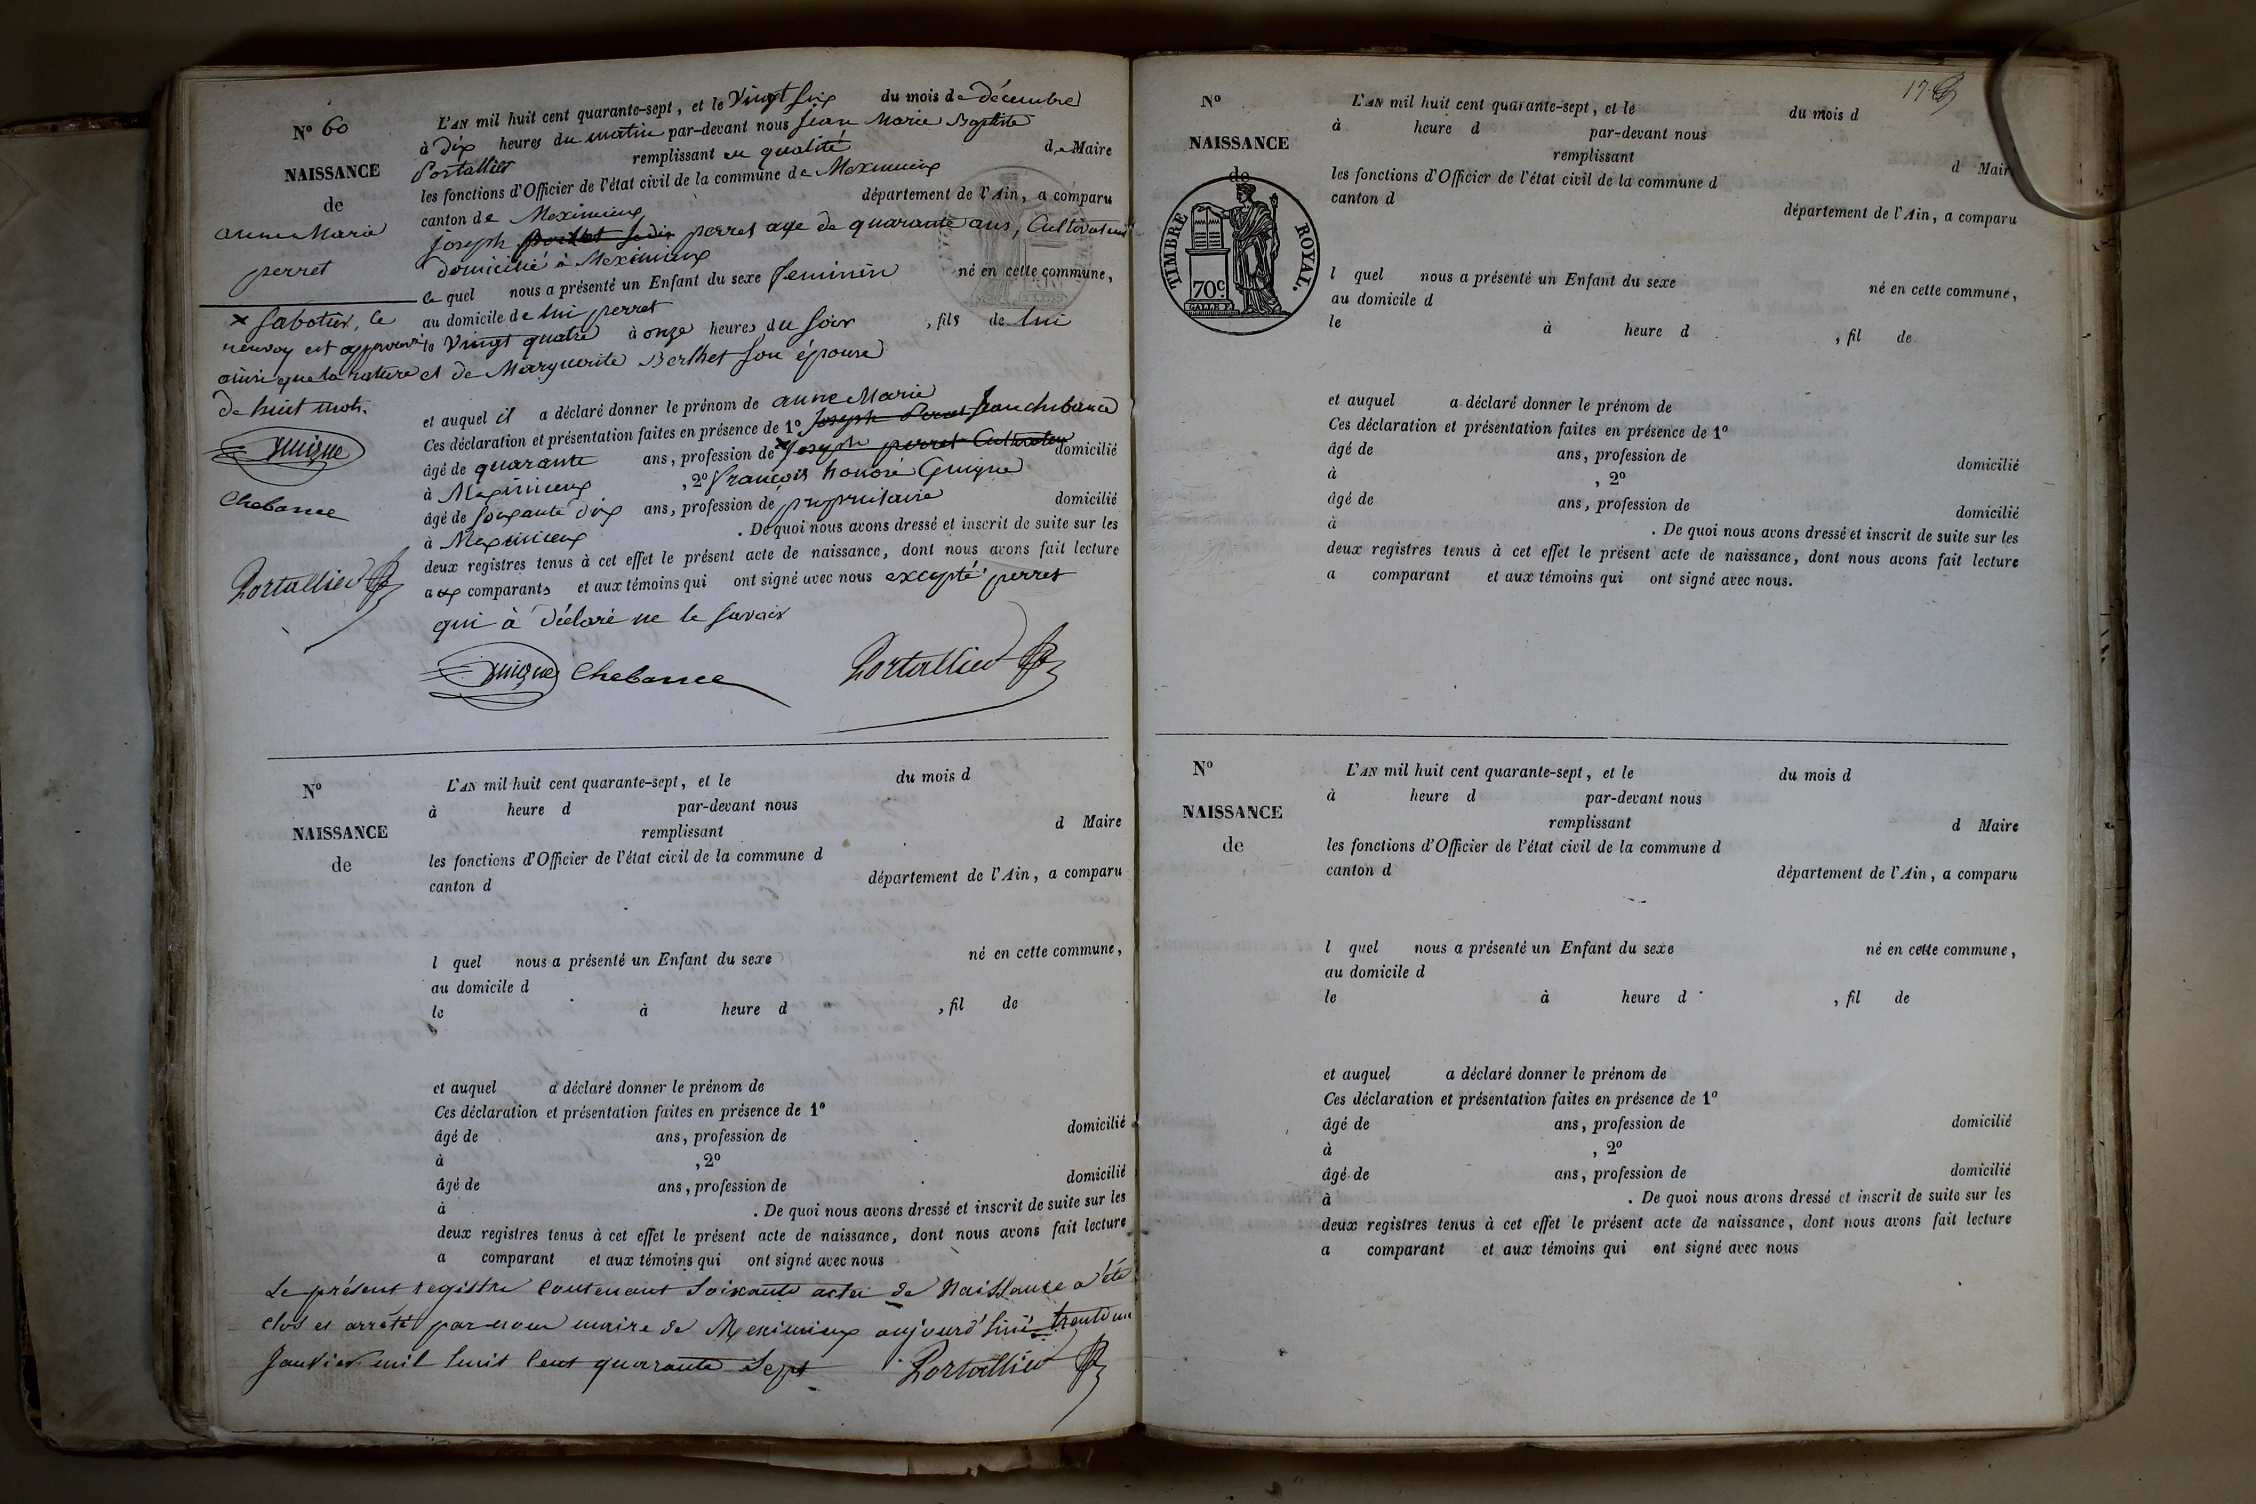 N° 60
NAISSANCE
de
anne Marie
perret
L'AN mil huit cent quarante-sept, et le Vingt six du mois de décembre
à Dix heures du matin par-devant nous Jean Marie Baptiste
Portallier remplissant en qualité de Maire
les fonctions d'Officier de l'état civil de la commune de Meximieux
canton de Meximieux département de l'Ain, a comparu
Joseph perret age de quarante ans, Cultivateur
domicilié à Meximieux
le quel nous a présenté un Enfant du sexe feminin né en cette commune,
au domicile de lui perret
le Vingt quatre à onze heures du soir, fils de lui
et de Marguerite Berthet son épouse
et auquel il a déclaré donner le prénom de anne Marie
Ces déclaration et présentation faites en présence de 1° Joseph Perret Jean chebance
âgé de quarante ans, profession de × Joseph perret Cultivateur domicilié
à Meximieux, 2° François honoré Guigue
âgé de soixante dix ans, profession de propriétaire domicilié
à Meximieux. De quoi nous avons dressé et inscrit de suite sur les
deux registres tenus à cet effet le présent acte de naissance, dont nous avons fait lecture
aux comparants et aux témoins qui ont signé avec nous excepté perret
qui à déclaré ne le savoir
Guigue Chebance Portallier
× sabotier, le
renvoy est approuvé
ainsi que la rature
de huit mots.
Guigue
Chebance
Portallier
N°
NAISSANCE
de
L'AN mil huit cent quarante-sept, et le du mois d
à heure d par-devant nous
remplissant d Maire
les fonctions d'Officier de l'état civil de la commune d
canton d département de l'Ain, a comparu
l quel nous a présenté un Enfant du sexe né en cette commune,
au domicile d
le à heure d , fil de
et auquel a déclaré donner le prénom de
Ces déclaration et présentation faites en présence de 1°
âgé de ans, profession de domicilié
à , 2°
âgé de ans, profession de domicilié
à . De quoi nous avons dressé et inscrit de suite sur les
deux registres tenus à cet effet le présent acte de naissance, dont nous avons fait lecture
a comparant et aux témoins qui ont signé avec nous
Le présent registre contenant soixante actes de Naissance a été
clos et arrêté par nous maire de Meximieux aujourd'hui trente un
Janvier mil huit cent quarante sept Portallier
17
N°
NAISSANCE
de
TIMBRE ROYAL.
70c
L'AN mil huit cent quarante-sept, et le du mois d
à heure d par-devant nous
remplissant d Mair
les fonctions d'Officier de l'état civil de la commune d
canton d département de l'Ain, a comparu
l quel nous a présenté un Enfant du sexe né en cette commune,
au domicile d
le à heure d , fil de
et auquel a déclaré donner le prénom de
Ces déclaration et présentation faites en présence de 1°
âgé de ans, profession de domicilié
à , 2°
âgé de ans, profession de domicilié
à . De quoi nous avons dressé et inscrit de suite sur les
deux registres tenus à cet effet le présent acte de naissance, dont nous avons fait lecture
a comparant et aux témoins qui ont signé avec nous.
N°
NAISSANCE
de
L'AN mil huit cent quarante-sept, et le du mois d
à heure d par-devant nous
remplissant d Maire
les fonctions d'Officier de l'état civil de la commune d
canton d département de l'Ain, a comparu
l quel nous a présenté un Enfant du sexe né en cette commune,
au domicile d
le à heure d , fil de
et auquel a déclaré donner le prénom de
Ces déclaration et présentation faites en présence de 1°
âgé de ans, profession de domicilié
à , 2°
âgé de ans, profession de domicilié
à . De quoi nous avons dressé et inscrit de suite sur les
deux registres tenus à cet effet le présent acte de naissance, dont nous avons fait lecture
a comparant et aux témoins qui ont signé avec nous